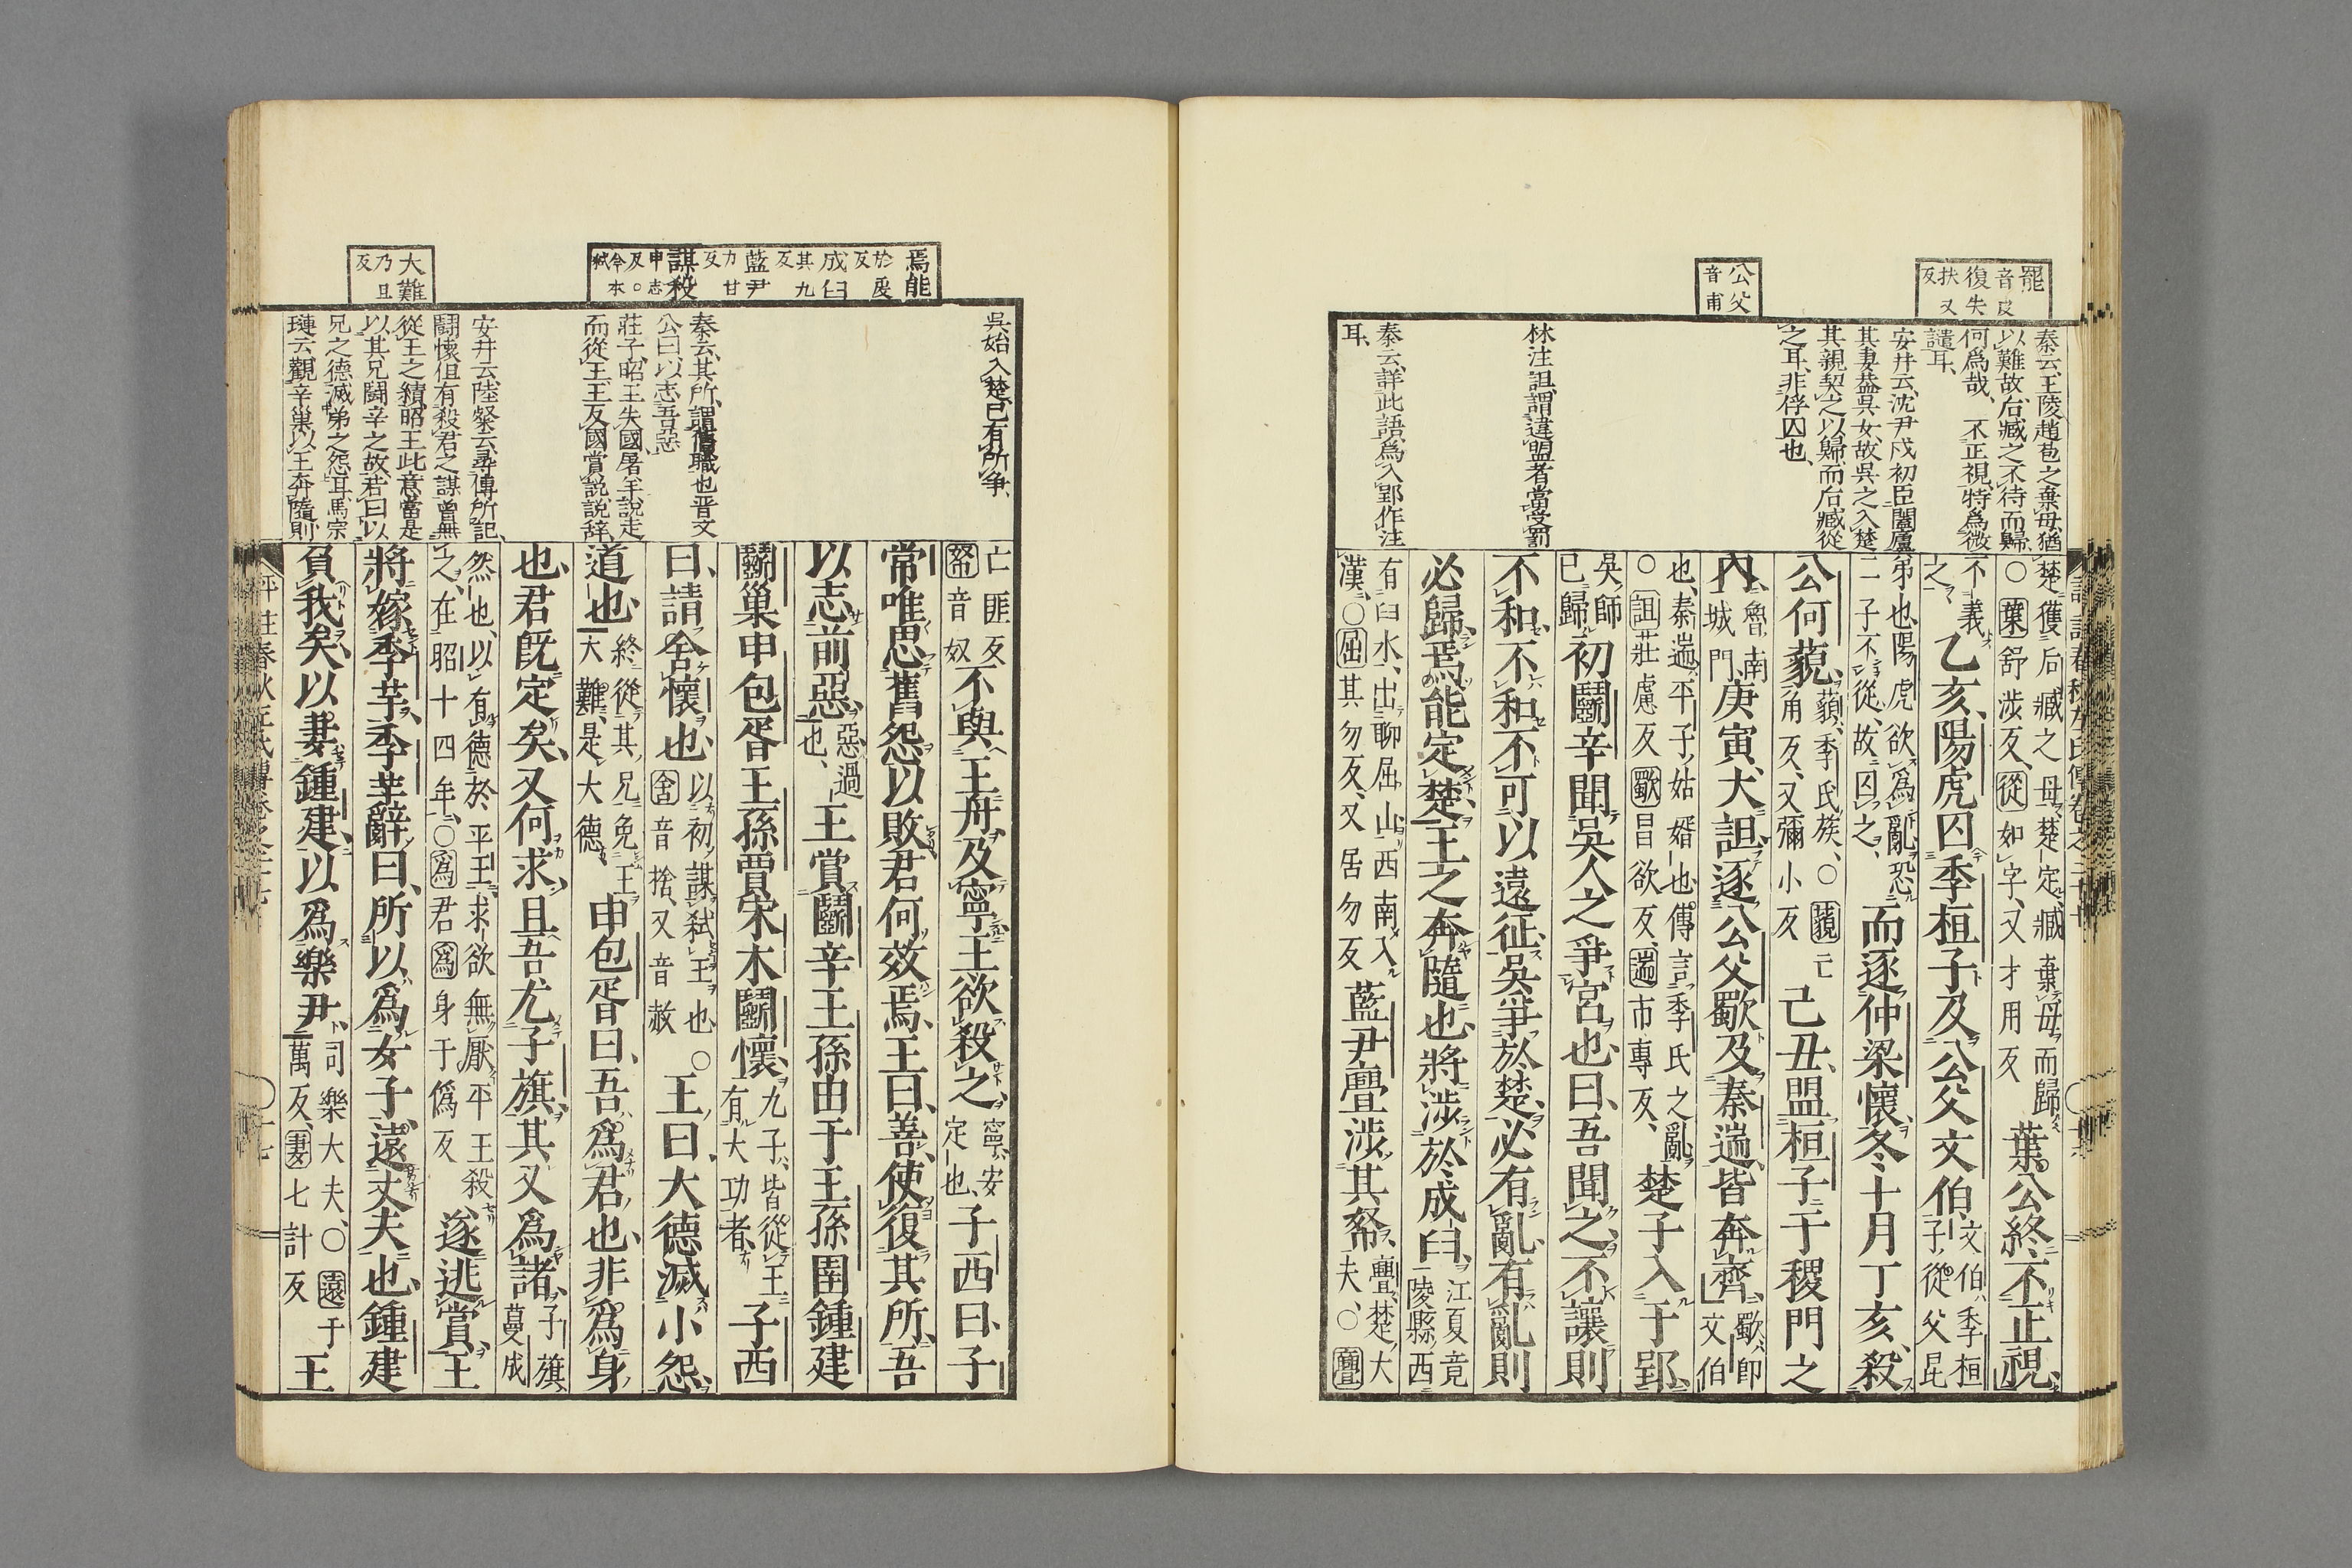 罷
音皮
復失
扶又
反
公父
音甫
秦云、王陵趙苞之棄母、猶
以難故、后臧之不待而歸、
何爲哉、不正視、特爲微
譴耳、
安井云、沈尹戌初臣闔廬、
其妻葢吳女、故吳之入楚、
其親契之以歸、而后臧從
之耳、非俘囚也、
林注、詛、謂違盟者當受罰
秦云、詳此語、爲入郢作注
耳、
楚獲后臧之母、楚定、臧棄母而歸、
○葉舒涉反、從如字、又才用反
葉公終不正視、
不義
之
乙亥、陽虎囚季桓子及公父文伯、
文伯、季桓
子從父昆
弟也、陽虎欲爲亂、恐
二子不從、故囚之、
而逐仲梁懷、冬、十月、丁亥、殺
公何藐、
藐、季氏族、○藐亡
角反、又彌小反
己丑、盟桓子于稷門之
內、
魯南
城門、
庚寅、大詛、逐公父歜及秦遄、皆奔齊、
歜、即
文伯
也、秦遄、平子姑婿也、傳言季氏之亂、
○詛莊慮反、歜昌欲反、遄市專反、
楚子入于郢、
吳師
已歸
初鬭辛聞吳人之爭宮也、曰、吾聞之、不讓則
不和、不和不可以遠征、吳爭於楚、必有亂、有亂則
必歸、焉能定楚、王之奔隨也、將涉於成臼、
江夏竟
陵縣西
有臼水、出聊屈山、西南入
漢、○屈其勿反、又居勿反
藍尹亹涉其帑、
亹、楚大
夫、○亹
焉能
於虔
反
成臼
其九
反
藍尹
力甘
反
謀殺
申志
反○
今本
弑
大難
乃且
反
吳始入楚、已有所爭、
秦云、其所、謂舊職也、晋文
公曰、以志吾惡
莊子、昭王失國、屠羊說走
而從王、王反國、賞說、說辭、
安井云、陸粲云、尋傳所記、
鬭懷但有殺君之謀、曾無
從王之績、昭王此意、當是
以其兄鬭辛之故、若曰以
兄之德、滅弟之怨耳、馬宗
璉云、觀辛巢以王奔隨、則
亡匪反、
帑音奴
不與王舟、及寧、王欲殺之、
寧、安
定也、
子西曰、子
常唯思舊怨以敗、君何效焉、王曰、善、使復其所、吾
以志前惡、
惡、過
也、
王賞鬭辛、王孫由于、王孫圉、鍾建、
鬭巢、申包胥、王孫賈、宋木、鬭懷、
九子、皆從王
有大功者、
子西
曰、請舍懷也、
以初謀弑王也、○
舍音捨、又音赦
王曰、大德滅小怨、
道也、
終從其兄、免王
大難、是大德、
申包胥曰、吾爲君也、非爲身
也、君既定矣、又何求、且吾尤子旗、其又爲諸、
子旗、
蔓成
然也、以有德於平王、求欲無厭、平王殺
之、在昭十四年、○爲君爲身于僞反
遂逃賞、王
將嫁季芊、季芊辭曰、所以爲女子、遠丈夫也、鍾建
負我矣、以妻鍾建、以爲樂尹、
司樂大夫、○遠于
萬反、妻七計反
王